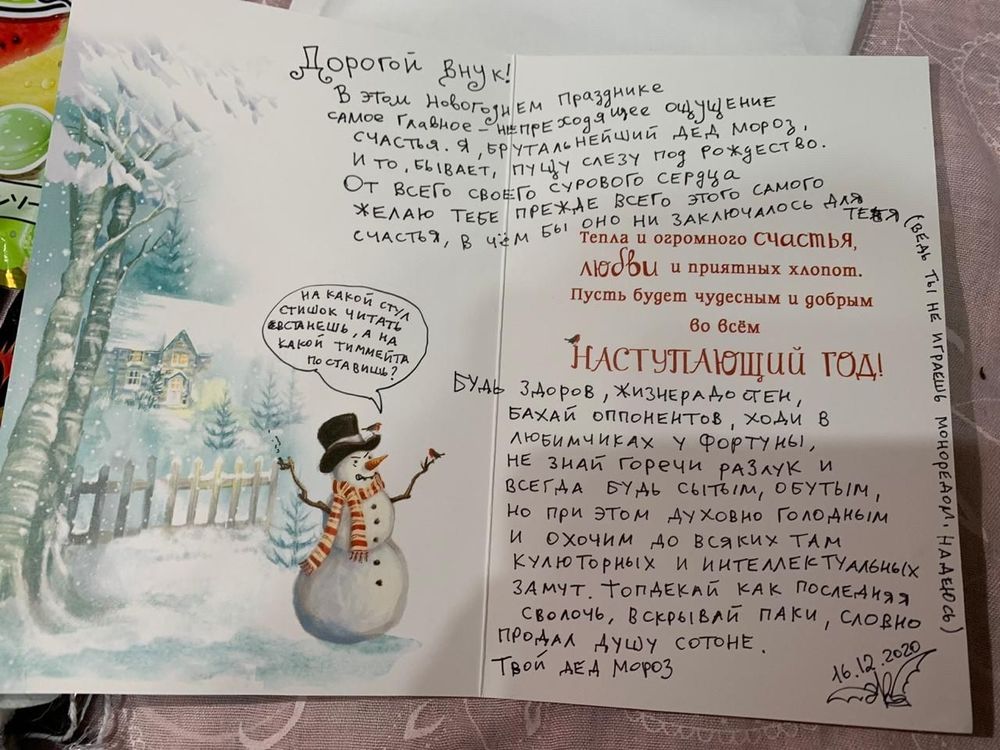 Дорогой внук!
В этом Новогоднем празднике
самое главное – непреходящее ощущение
счастья. Я, брутальнейший Дед Мороз,
и то, бывает, пущу слезу под Рождество.
От всего своего сурового сердца
желаю тебе прежде всего этого самого
счастья, в чём бы оно ни заключалось для
тебя (ведь ты не играешь моноредом, надеюсь)
Тепла и огромного счастья,
любви и приятных хлопот.
Пусть будет чудесным и добрым
во всём
НАСТУПАЮЩИЙ ГОД!
На какой стул
стишок читать
встанешь, а на
какой тиммейта
поставишь?
Будь здоров, жизнерадостен,
бахай оппонентов, ходи в
любимчиках у фортуны,
не знай горечи разлук и
всегда будь сытым, обутым,
но при этом духовно голодным
и охочим до всяких там
кулюторных и интеллектуальных
замут. Топдекай как последняя
сволочь, вскрывай паки, словно
продал душу сотоне.
Твой Дед Мороз
16.12.2020